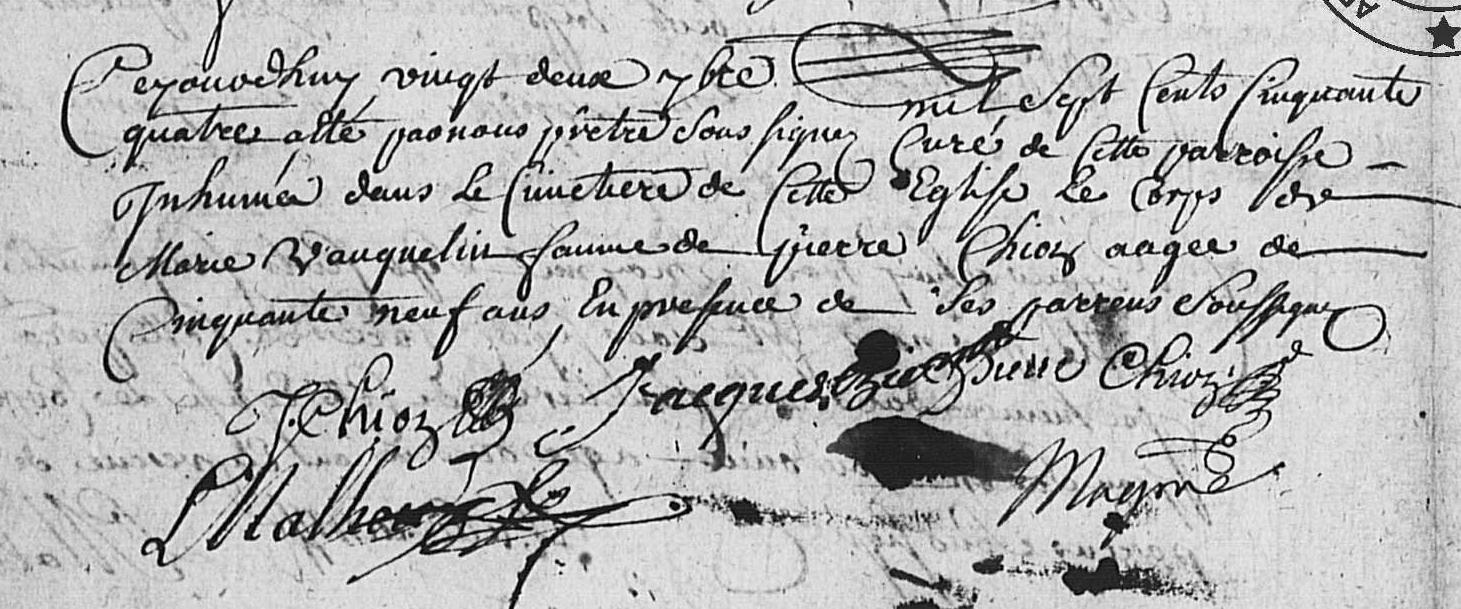 Cejourdhuy vingt deux 7bre mil Sept Cents Cinquante
quatre a été par nous prêtre Soussignez Curé de Cette parroisse
Inhumée dans Le Cimetiere de Cette Eglise Le Corps de
Marie Vauquelin famme de pierre Chion aagée de
Cinquante neuf ans, En presence de Ses parrens Soussignez
J. Chion Jacques pierre Chion
Malher